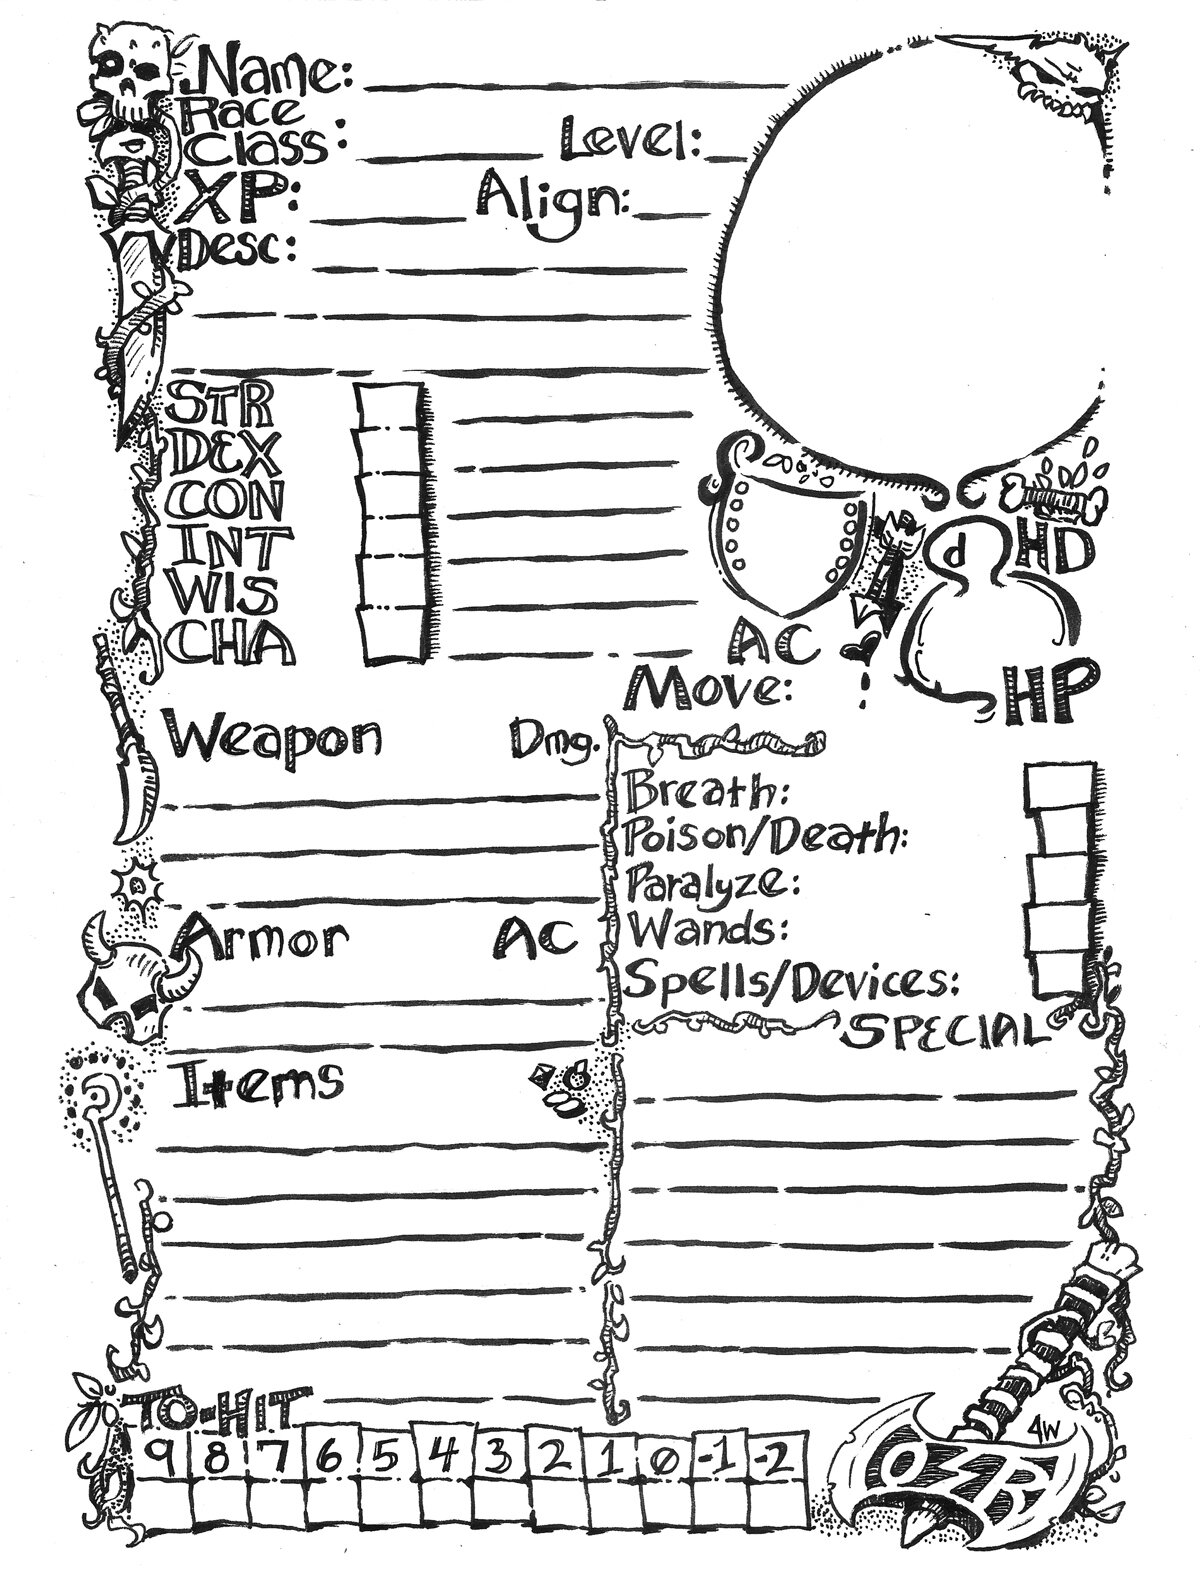 Name:
Race
Class:
Level:
XP:
Align:
Desc:
STR
DEX
CON
INT
WIS
CHA
d
HD
AC
HP
Move:
Weapon Dmg.
Breath:
Poison/Death:
Paralyze:
Wands:
Spells/Devices:
Armor AC
SPECIAL
Items
TO-HIT
9 8 7 6 5 4 3 2 1 0 -1 -2
4W
OSR